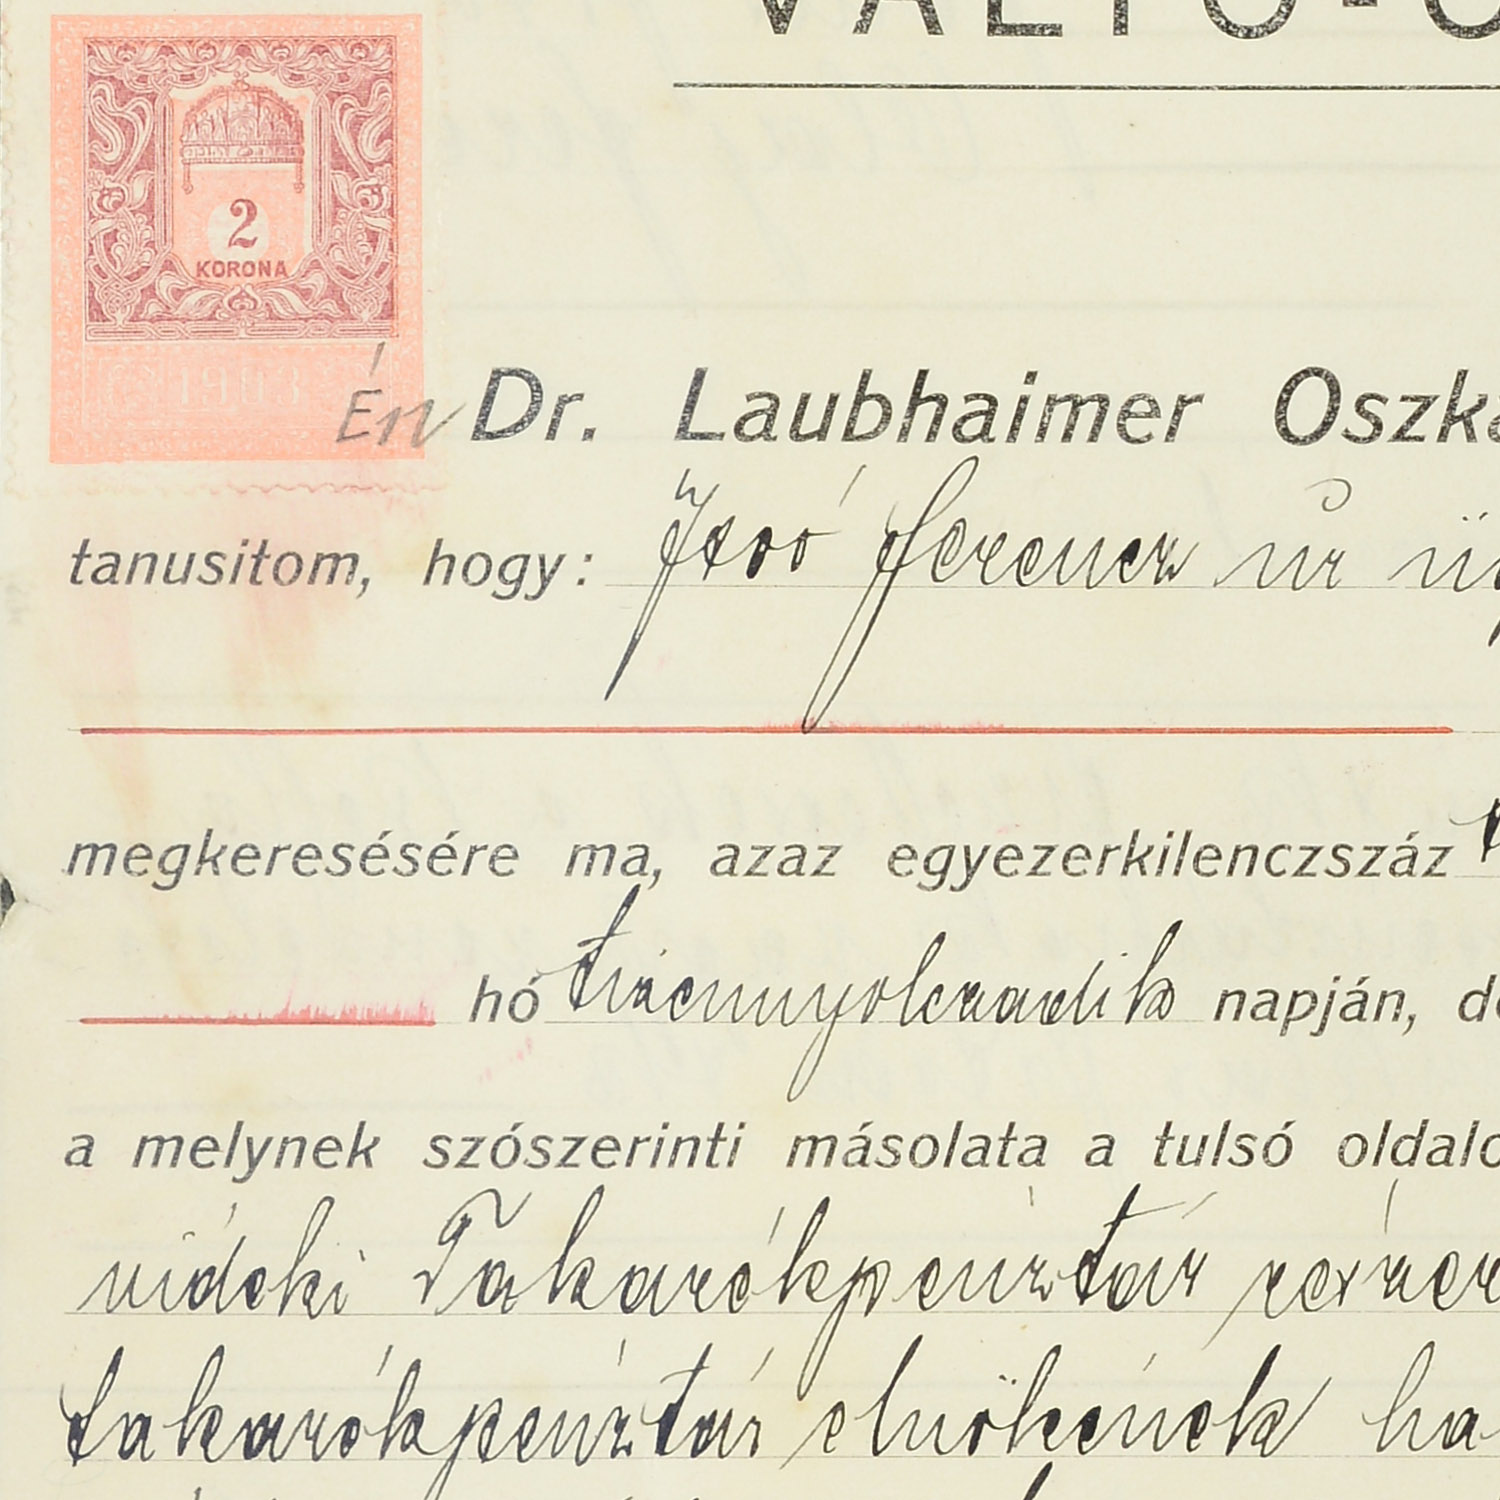 VÁLTÓ-Ó
2
KORONA
1903
Én Dr. Laubhaimer Oszká
tanusitom, hogy: Ferencz úr ü
megkeresésére ma, azaz egyezerkilenczszáz
hó tizennyolczadik napján, de
a melynek szószerinti másolata a tulsó oldalo
vidéki Takarékpénztár részér
takarékpénztár elnökének ha